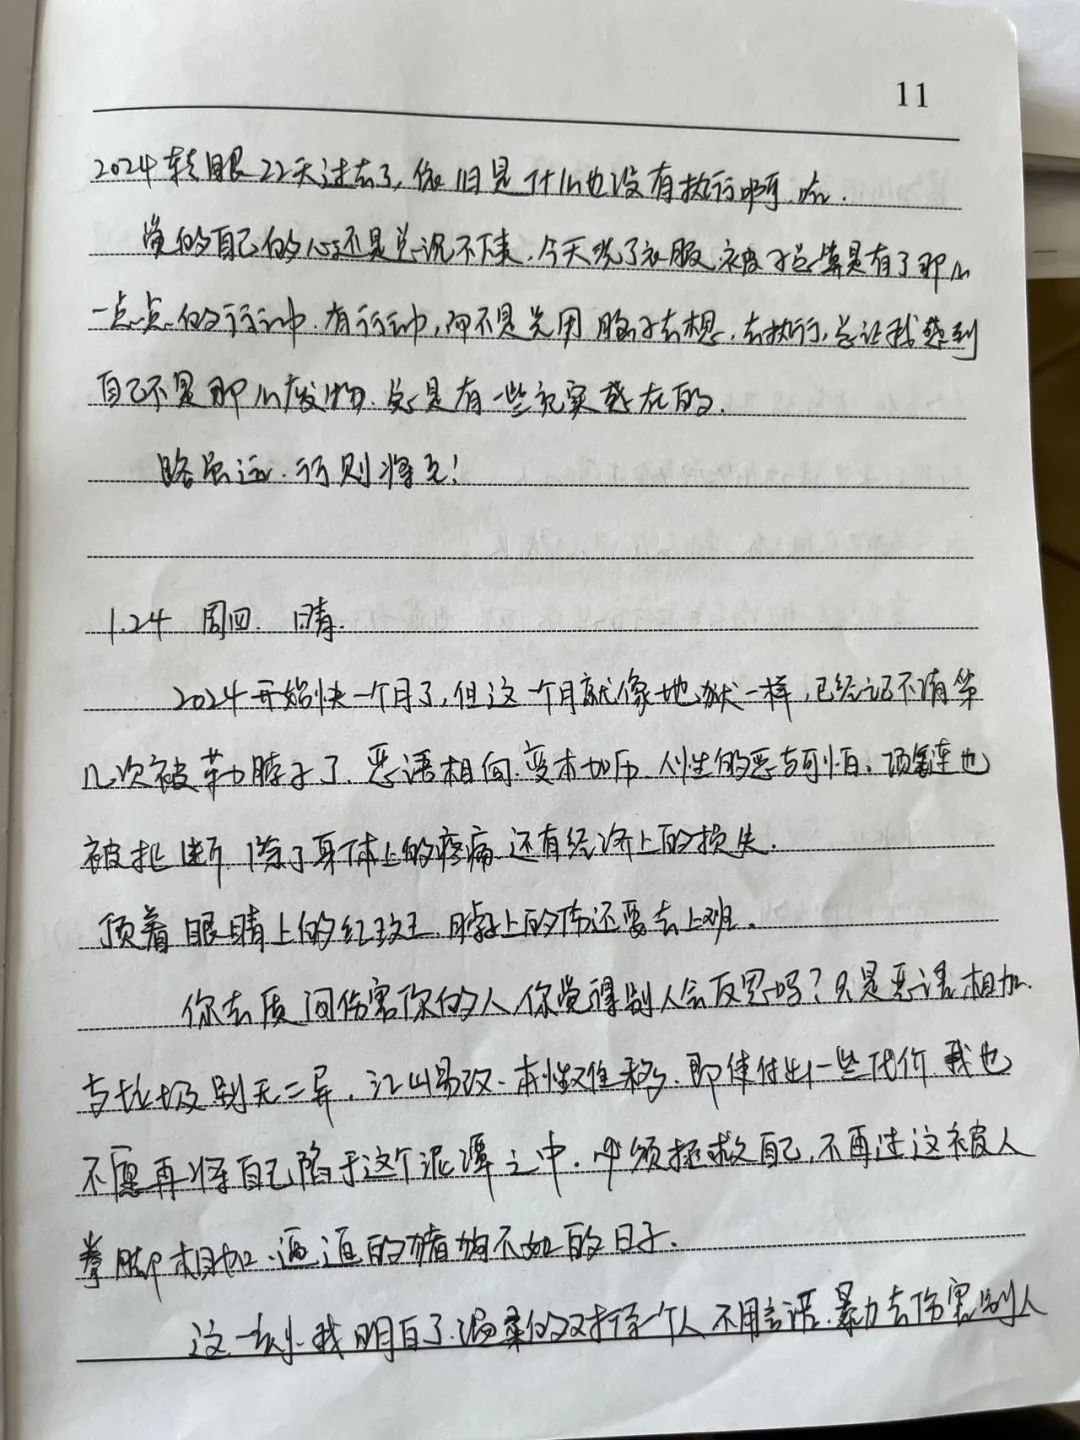 11
2024转眼22天过去了,依旧是什么也没有执行啊.
觉的自己的心还是总沉不下来.今天洗了衣服、被子总算是有了那么
一点点的行动.有行动,而不是光用脑子去想,去执行,总让我感到
自己不是那么废物.总是有一些充实感在的.
路虽远.行则将至!
1.24 周四. 晴.
2024开始快一个月了,但这一个月就像地狱一样,已经记不清第
几次被勒脖子了.恶语相向.变本加厉.人性的恶与可怕.项链也
被扯断.除了身体上的疼痛.还有经济上的损失.
顶着眼睛上的红斑.脖子上的伤还要去上班.
你去质问伤害你的人,你觉得别人会反思吗?只是恶语相加.
与垃圾别无二异.江山易改.本性难移.即使付出一些代价.我也
不愿再将自己陷于这个泥潭之中.必须拯救自己,不再过这被人
拳脚相加.逼迫的猪狗不如的日子.
这一刻.我明白了.温柔的对待一个人 不用言语.暴力去伤害别人